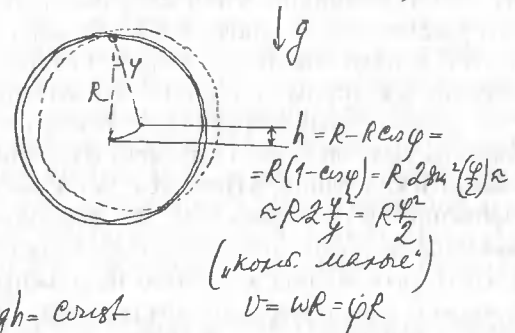 g
φ
R
h = R - R cos φ =
= R(1 - cos φ) = R 2 sin²(φ/2) ≈
≈ R 2 φ²/4 = R φ²/2
("колеб. малые")
gh = const
v = ωR = φ̇R